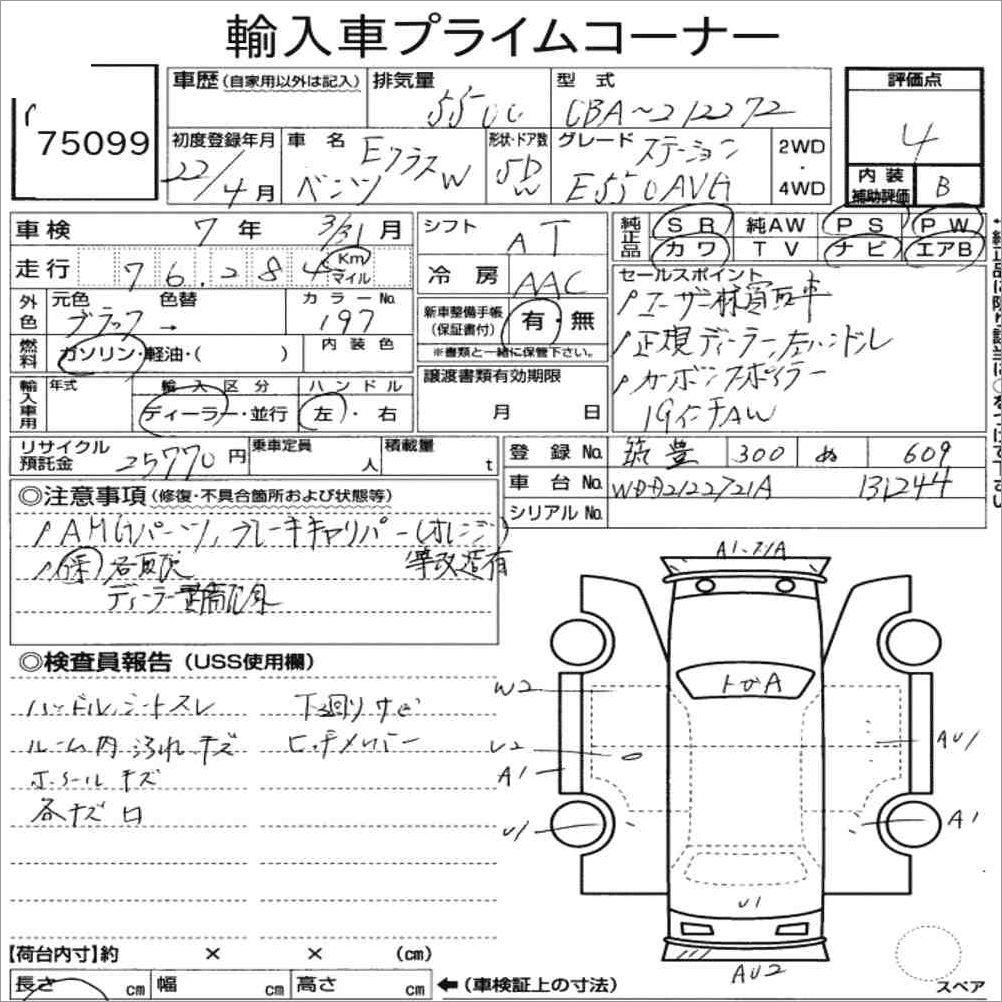 輸入車プライムコーナー
75099
車歴 (自家用以外は記入) 排気量 5500 型式 CBA〜212272
評価点 4
内装補助評価 B
初度登録年月 22/4月 車名 ベンツ EクラスW 形状・ドア数 5D W グレード ステーション E550AVG 2WD・4WD
車検 7年 3/31月
走行 76,284 Km マイル
シフト AT
冷房 AAC
純正品 SR 純AW PS PW
カワ TV ナビ エアB
外色 元色 ブラック → 色替 カラーNo. 197
燃料 ガソリン・軽油・( ) 内装色
新車整備手帳(保証書付) 有・無
※書類と一緒に保管下さい。
輸入車用 年式 輸入区分 ディーラー・並行 ハンドル 左・右
譲渡書類有効期限 月 日
セールスポイント
ユーザー様買取車
正規ディーラー, 左ハンドル
カーボンスポイラー
19インチAW
リサイクル預託金 25770円 乗車定員 人 積載量 t
登録No. 筑豊 300 ぬ 609
車台No. WDD2122721A 131244
シリアルNo.
◎注意事項 (修復・不具合箇所および状態等)
AMGパーツ, ブレーキキャリパー(オレンジ)
等改造有
(保) 名変次
◎検査員報告 (USS使用欄)
ハンドル, シートスレ 下回りサビ
ルーム内 汚れ キズ
ホイール キズ
各キズ凹
A1
トビA
W2
U2
A1
U1
AU1
A1
U1
AU2
スペア
【荷台内寸】約 × × (cm)
長さ cm 幅 cm 高さ cm ←(車検証上の寸法)